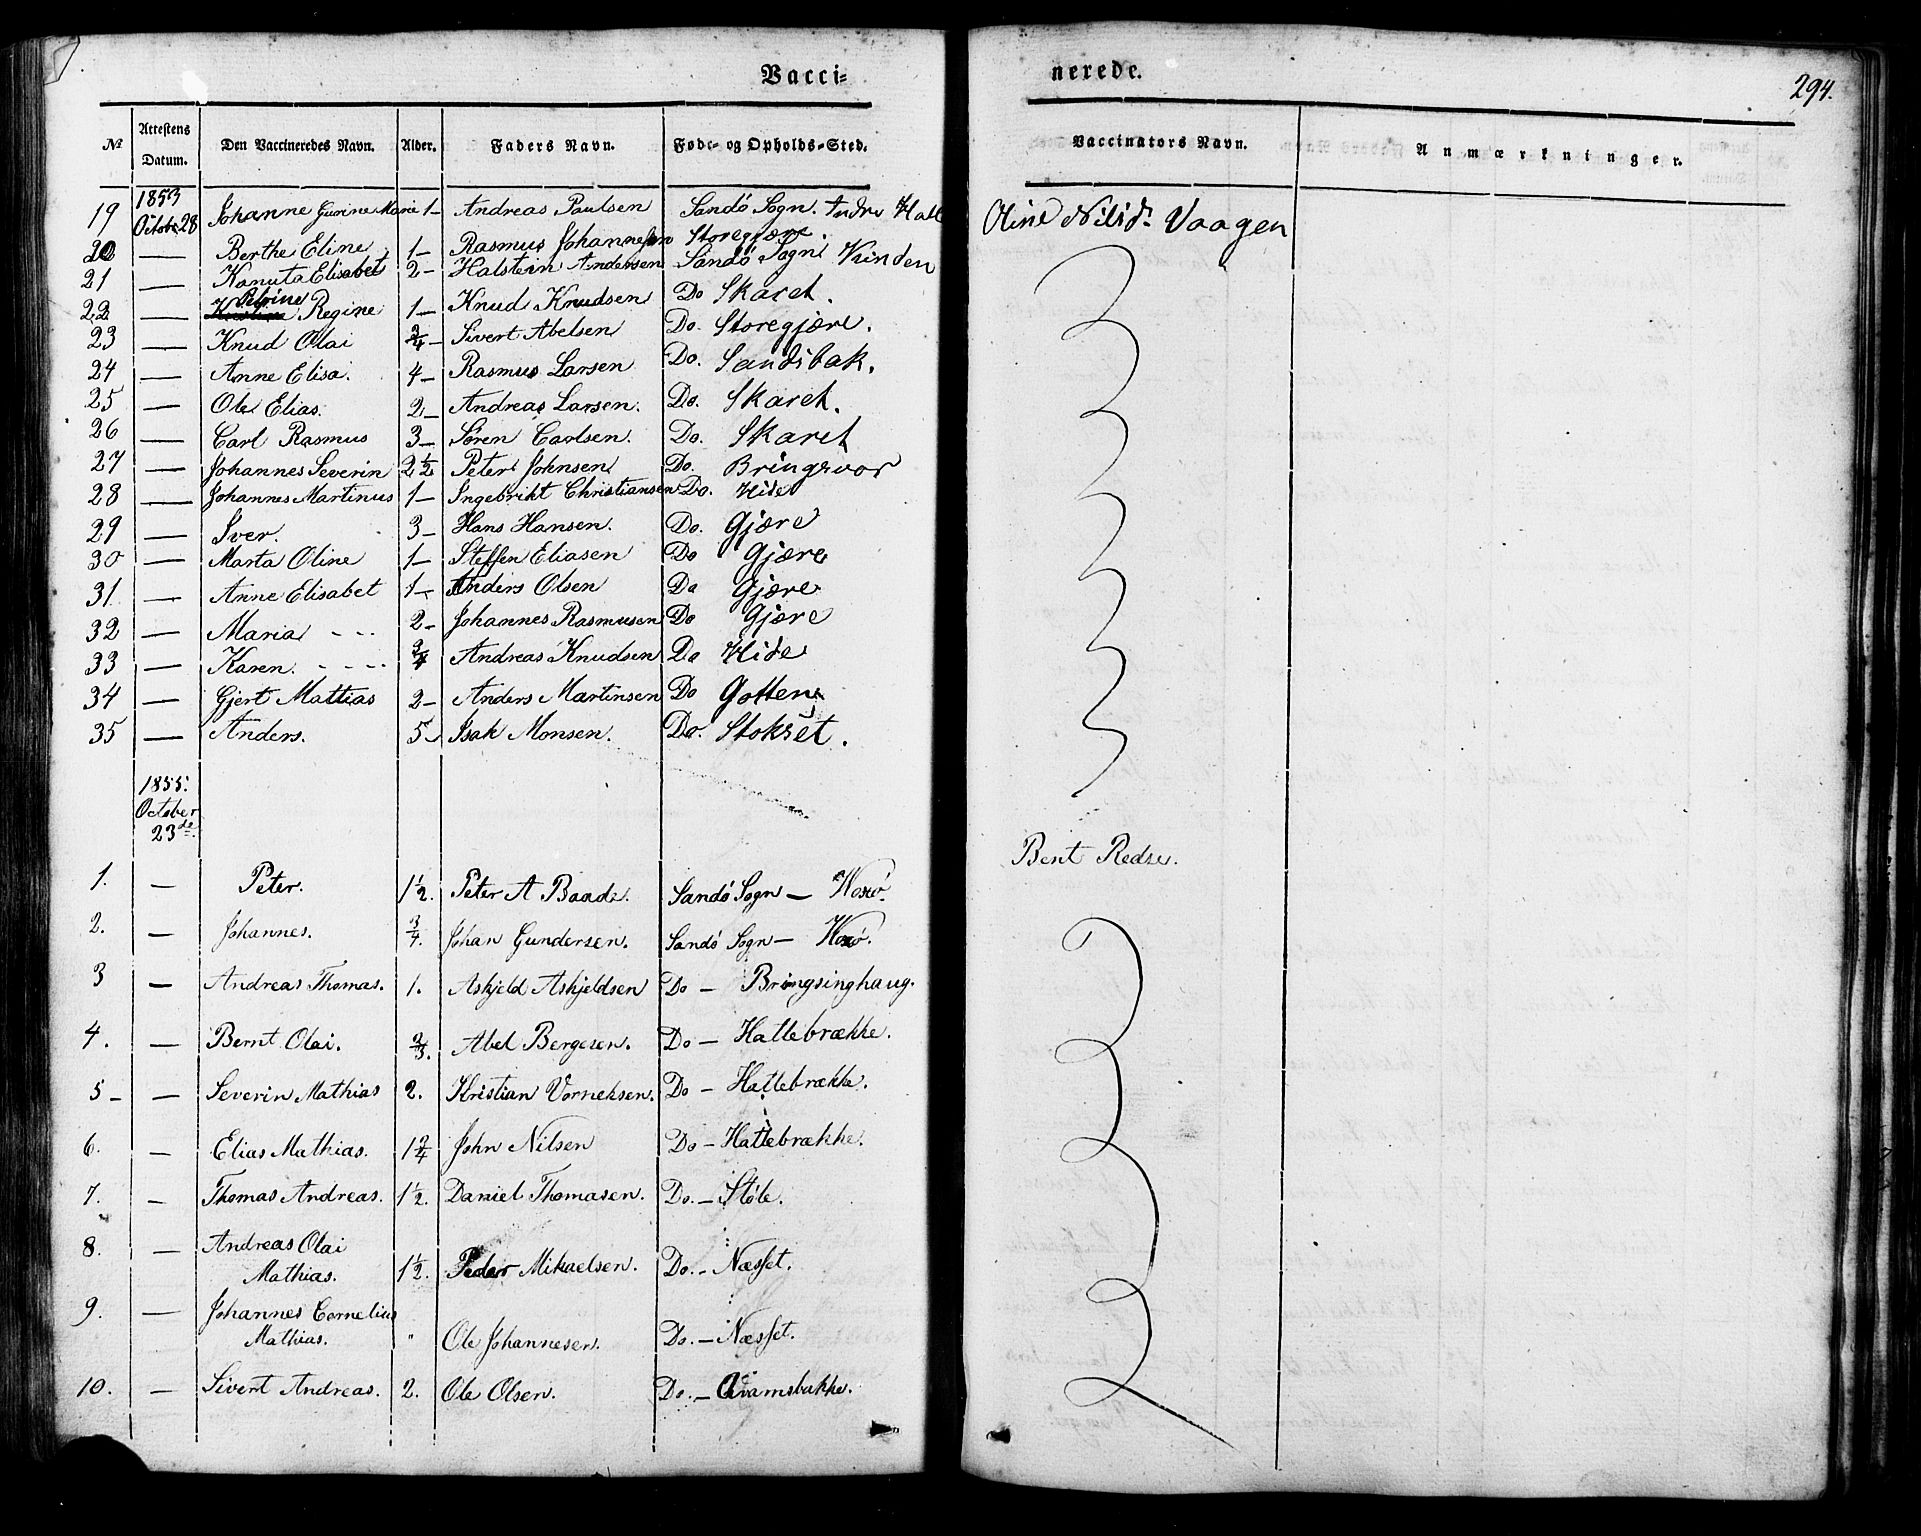 Vacci=
nerede.
294.
№ Attestens Datum. Den Vaccineredes Navn. Alder. Faders Navn. Føde- og Opholds-Sted. Vaccinators Navn. Anmærkninger.
1853
19 Octobr 28 Johanne Gurine Marie 1- Andreas Paulsen Sandö Sogn. Indre Oline Nilsdr Vaagen
20 — Berthe Eline 1- Rasmus Johannesen Storegjære
21 — Kanuta Elisabet 2- Halstein Andersen Sandö Sogn
22 — Petrine Regine 1- Knud Knudsen Do Skaret.
23 — Knud Olai 3/4- Sivert Abelsen Do. Storegjære.
24 — Anne Elisa. 4- Rasmus Larsen Do. Sandsbak.
25 — Ole Elias. 2- Andreas Larsen. Do. Skaret.
26 — Carl Rasmus 3- Sören Carlsen. Do. Skaret
27 — Johannes Severin 2 1/2 Peter Johnsen Do. Bringsvor
28 — Johannes Martinus 1- Ingebrikt Christiansen Do. Hide
29 — Iver. 3- Hans Hansen. Do. Gjære
30 — Marta Oline 1- Steffen Eliasen Do Gjære
31 — Anne Elisabet 1- Anders Olsen Do Gjære
32 — Maria - - - 2- Johannes Rasmusen Do Gjære
33 — Karen. - - - - 3/4 Andreas Knudsen Do Hide
34 — Gjert Mattias 2- Anders Martinsen Do Gotten
35 — Anders. 5- Isak Monsen. Do. Stokset.
1855.
October
23de.
Bent Redse.
1. — Peter. 1 1/2. Peter A Baade. Sandö Sogn —
2. — Johannes. 3/4. Johan Gundersen. Sandö Sogn —
3 — Andreas Thomas. 1. Askjeld Askjeldsen Do — Bringsinghaug.
4. — Bernt Olai. 2/3. Abel Bergesen. Do — Hattebrække.
5 - — Severin Mathias 2. Kristian Vorneksen. Do — Hattebrække.
6. — Elias Mathias. 1 2/4 John Nilsen Do — Hattebrække.
7. — Thomas Andreas. 1 1/2. Daniel Thomasen. Do. — Støle.
8. — Andreas Olai
Mathias. 1 1/2. Peder Mikaelsen. Do. — Næsset.
9. — Johannes Cornelius
Mathias. " Ole Johannesen. Do. — Næsset.
10. — Sivert Andreas. 2. Ole Olsen. Do. — Qvamsbakke.